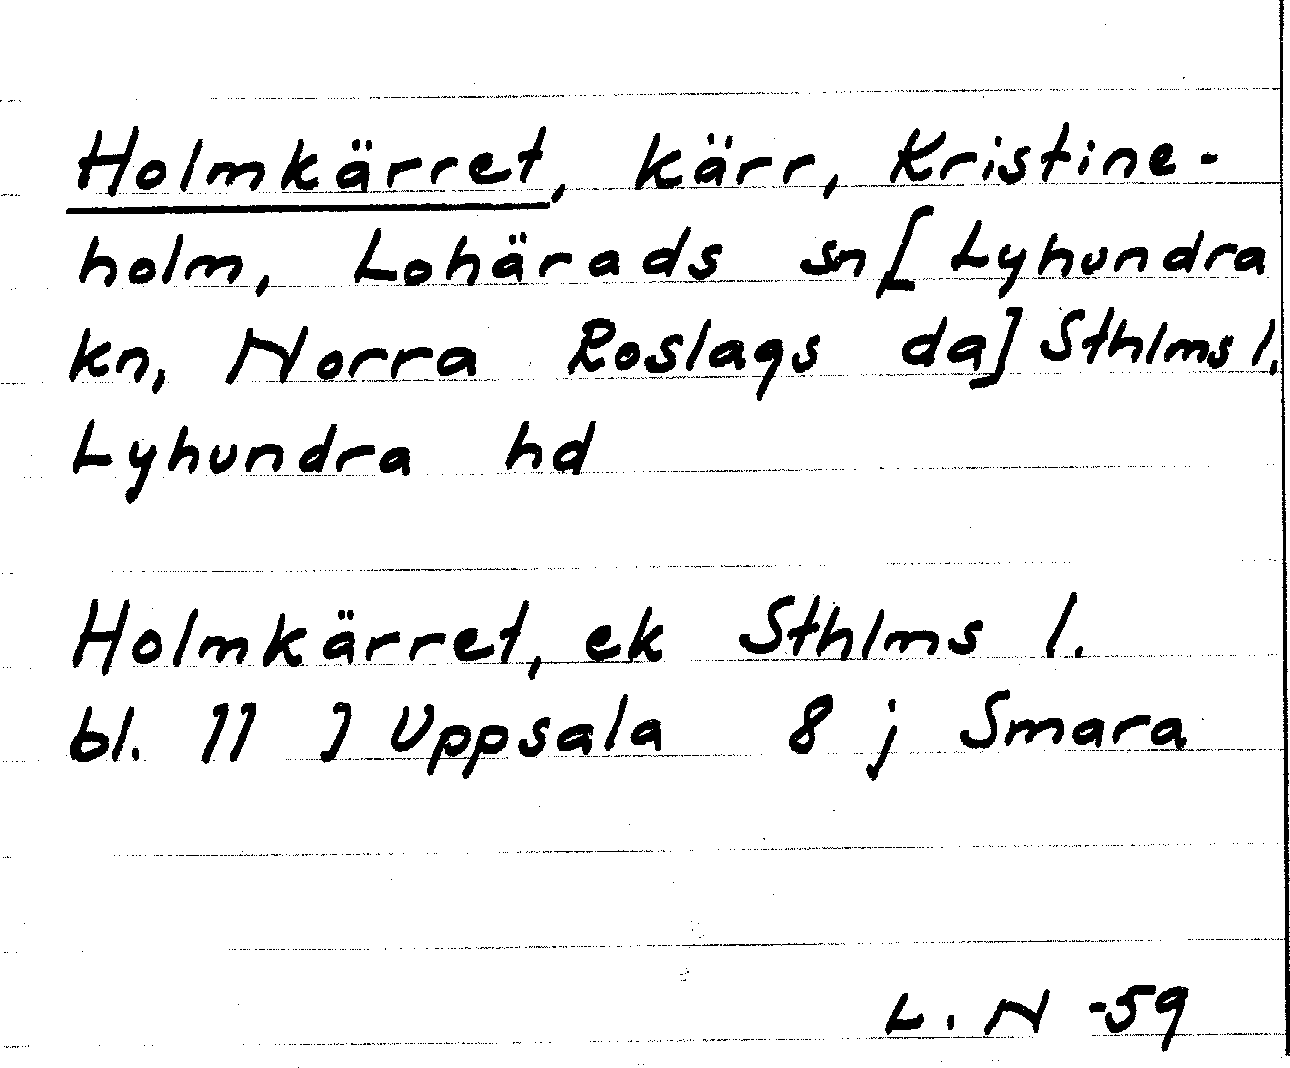 Holmkärret, kärr, Kristine-
holm, Lohärads sn [Lyhundra
kn, Norra Roslags da] Sthlms l.
Lyhundra hd
Holmkärret, ek Sthlms l.
bl. 11 I Uppsala 8 j Smara
L. N -59